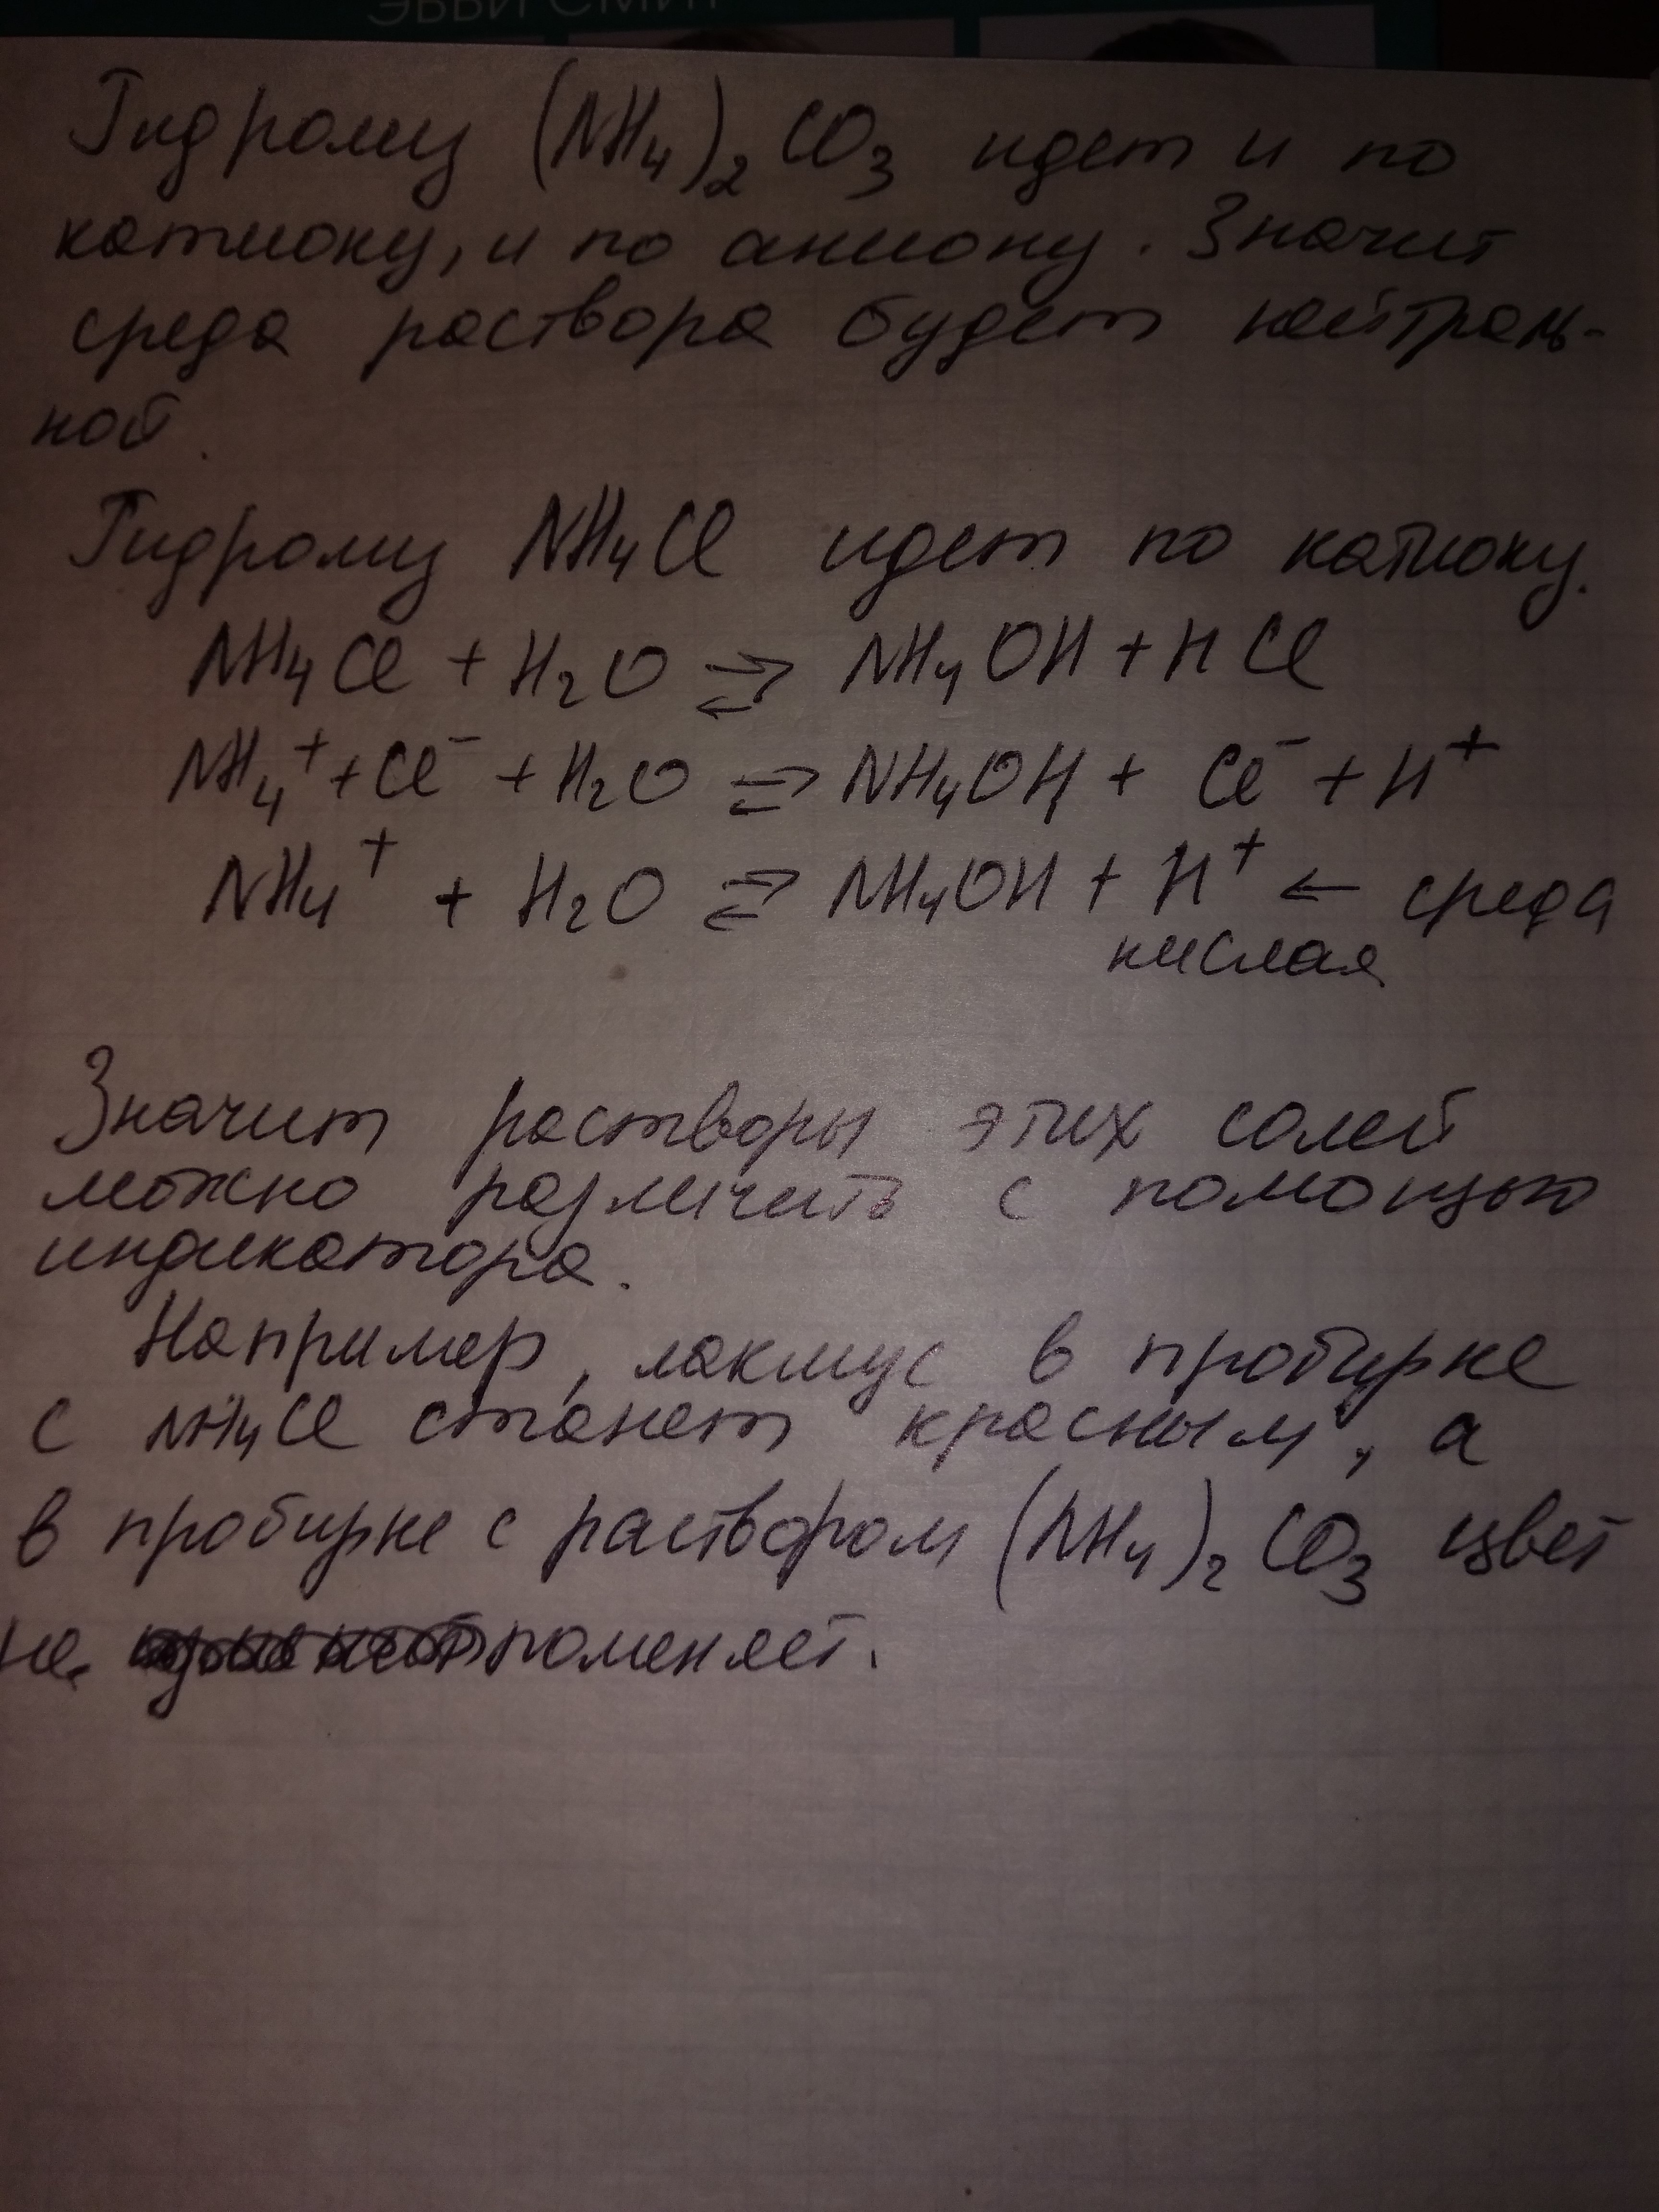 ЭББИ СМИТ
Гидролиз (NH₄)₂CO₃ идет и по
катиону, и по аниону. Значит
среда раствора будет нейтраль-
ной.
Гидролиз NH₄Cl идет по катиону.
NH₄Cl + H₂O ⇌ NH₄OH + HCl
NH₄⁺ + Cl⁻ + H₂O ⇌ NH₄OH + Cl⁻ + H⁺
NH₄⁺ + H₂O ⇌ NH₄OH + H⁺ ← среда
кислая
Значит растворы этих солей
можно различить с помощью
индикатора.
Например, лакмус в пробирке
с NH₄Cl станет красным, а
в пробирке с раствором (NH₄)₂CO₃ цвет
не поменяет.